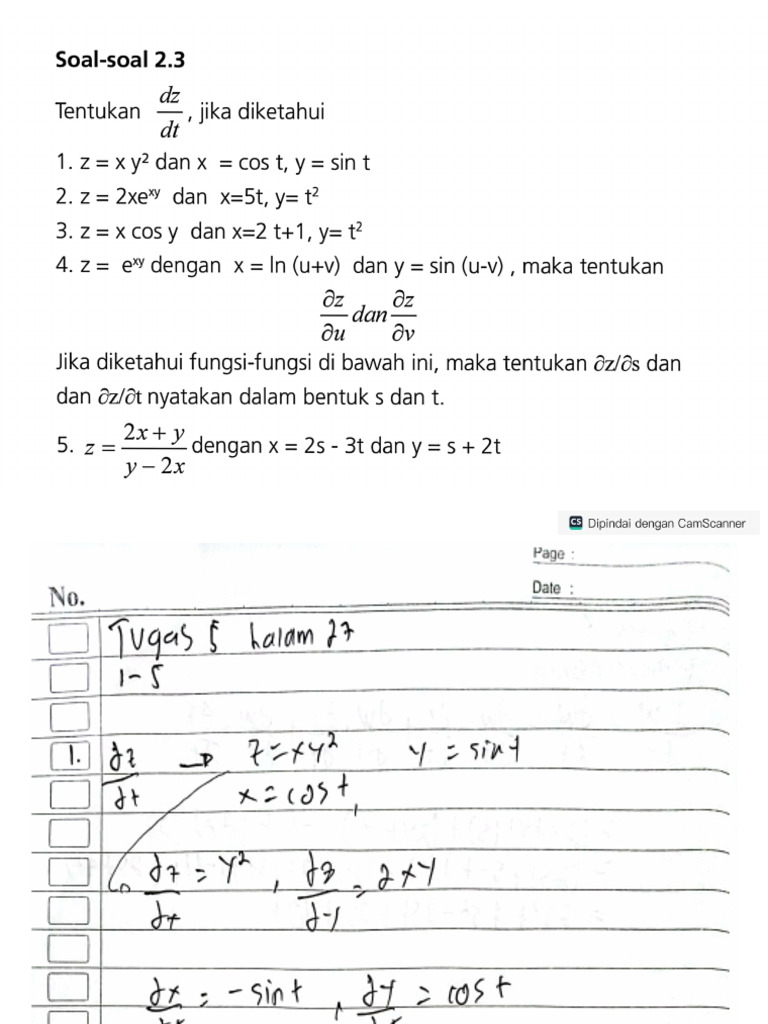 Soal-soal 2.3
Tentukan dz/dt, jika diketahui
1. z = x y² dan x = cos t, y = sin t
2. z = 2xeˣʸ dan x=5t, y= t²
3. z = x cos y dan x=2 t+1, y= t²
4. z = eˣʸ dengan x = ln (u+v) dan y = sin (u-v) , maka tentukan
∂z/∂u dan ∂z/∂v
Jika diketahui fungsi-fungsi di bawah ini, maka tentukan ∂z/∂s dan
dan ∂z/∂t nyatakan dalam bentuk s dan t.
5. z = (2x + y)/(y − 2x) dengan x = 2s - 3t dan y = s + 2t
CS Dipindai dengan CamScanner
Page :
No.
Date :
Tugas 5 halam 27
1-5
1. dz/dt → z = xy² y = sin t
x = cos t,
dz/dx = y² , dz/dy = 2xy
dx = -sin t , dy = cos t